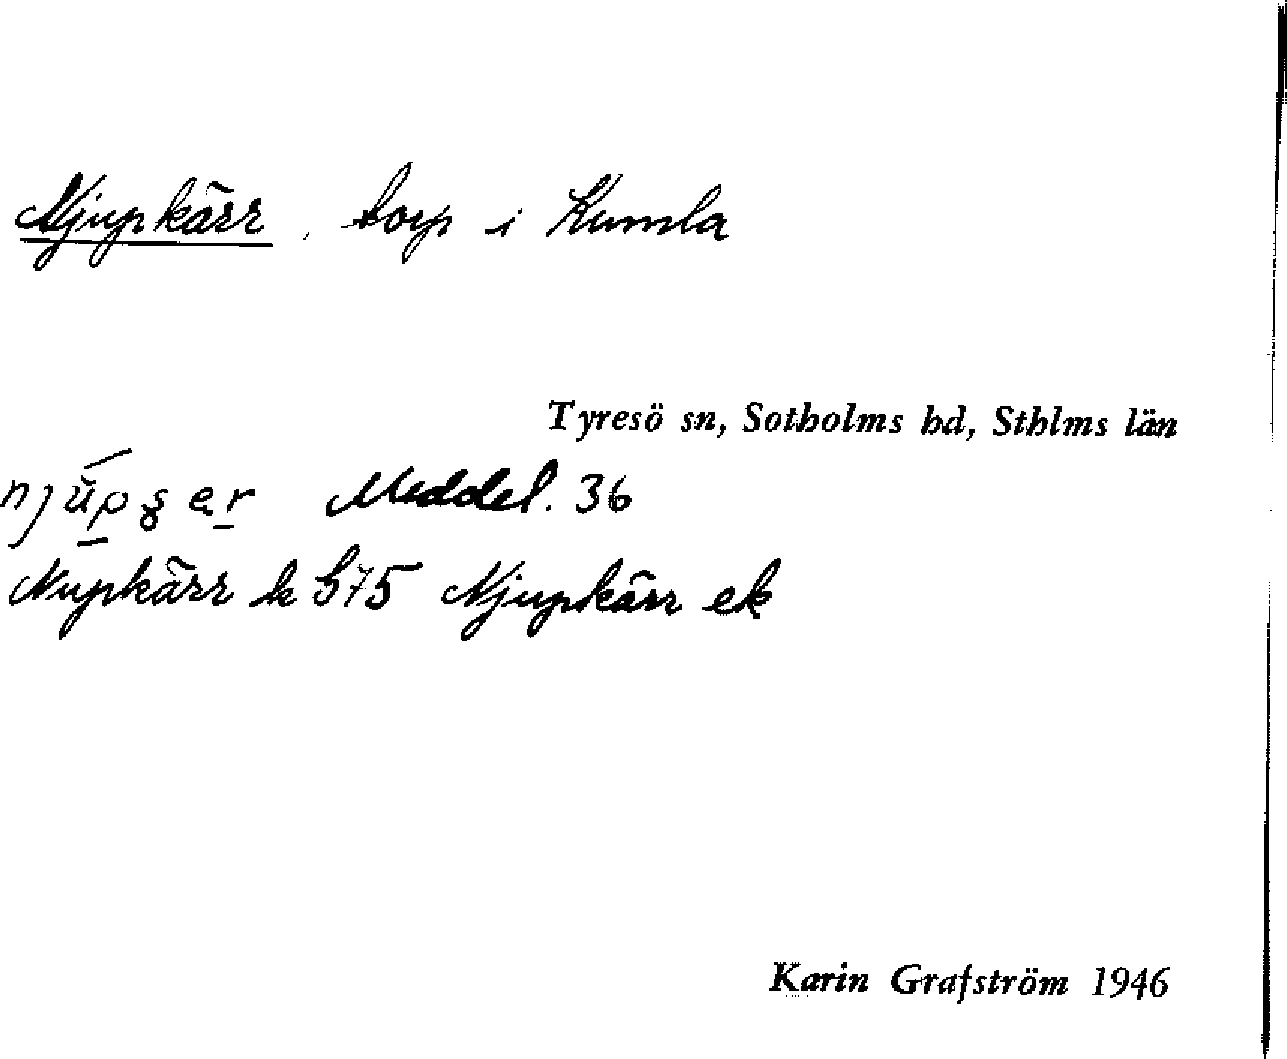 Njupkärr, torp i Kumla
Tyresö sn, Sotholms hd, Sthlms län
Meddel. 36
Nupkärr k 675 Njupkärr ek
Karin Grafström 1946